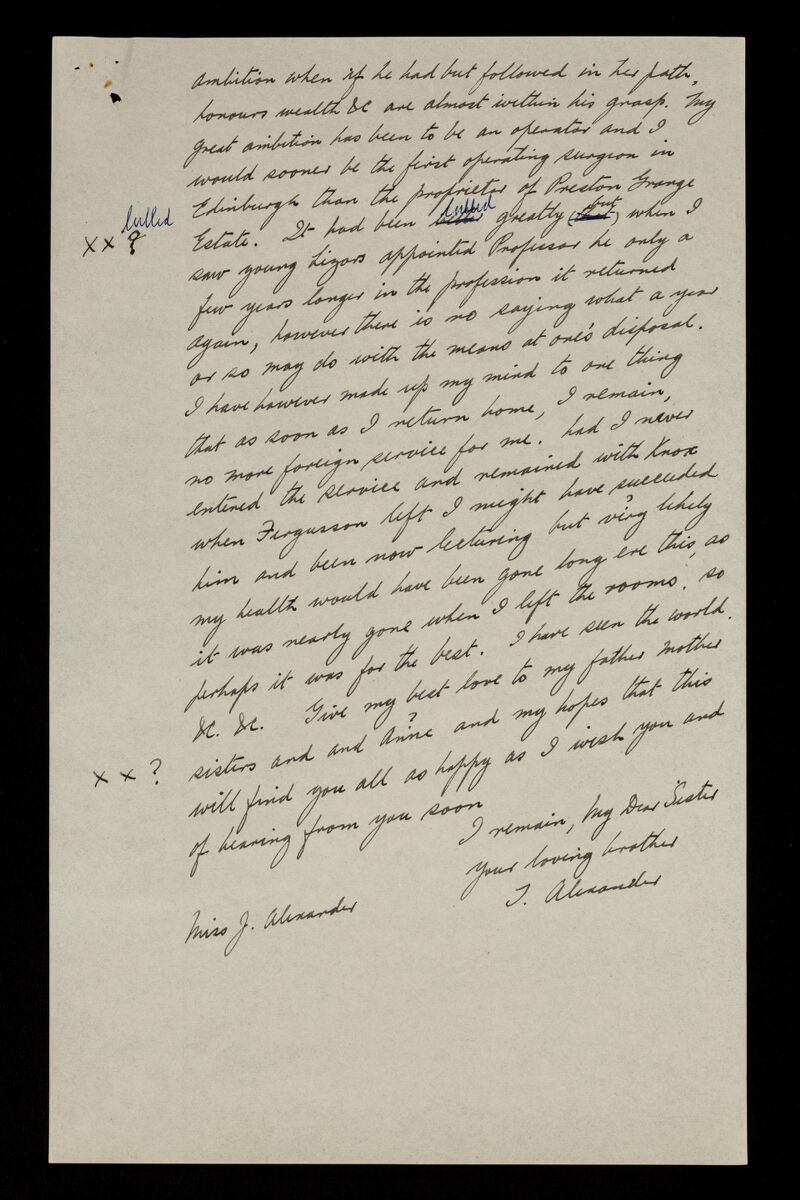 ambition when if he had but followed in her path,
honours wealth &c are almost within his grasp. My
great ambition has been to be an operator and I
would sooner be the first operating surgeon in
Edinburgh than the proprietor of Preston Grange
lulled
lulled
x x ? Estate. It had been greatly (but) when I
saw young Lizars appointed Professor he only a
few years longer in the profession it returned
again, however there is no saying what a year
or so may do with the means at one's disposal.
I have however made up my mind to one thing
that as soon as I return home, I remain,
no more foreign service for me. had I never
entered the service and remained with Knox
when Fergusson left I might have succeeded
him and been now lecturing but very likely
my health would have been gone long ere this, as
it was nearly gone when I left the rooms. so
perhaps it was for the best. I have seen the world.
&c. &c. Give my best love to my father mother
x x ? sisters and and Anne and my hopes that this
will find you all as happy as I wish you and
of hearing from you soon
I remain, My Dear Sister
your loving brother
T. Alexander
Miss J. Alexander